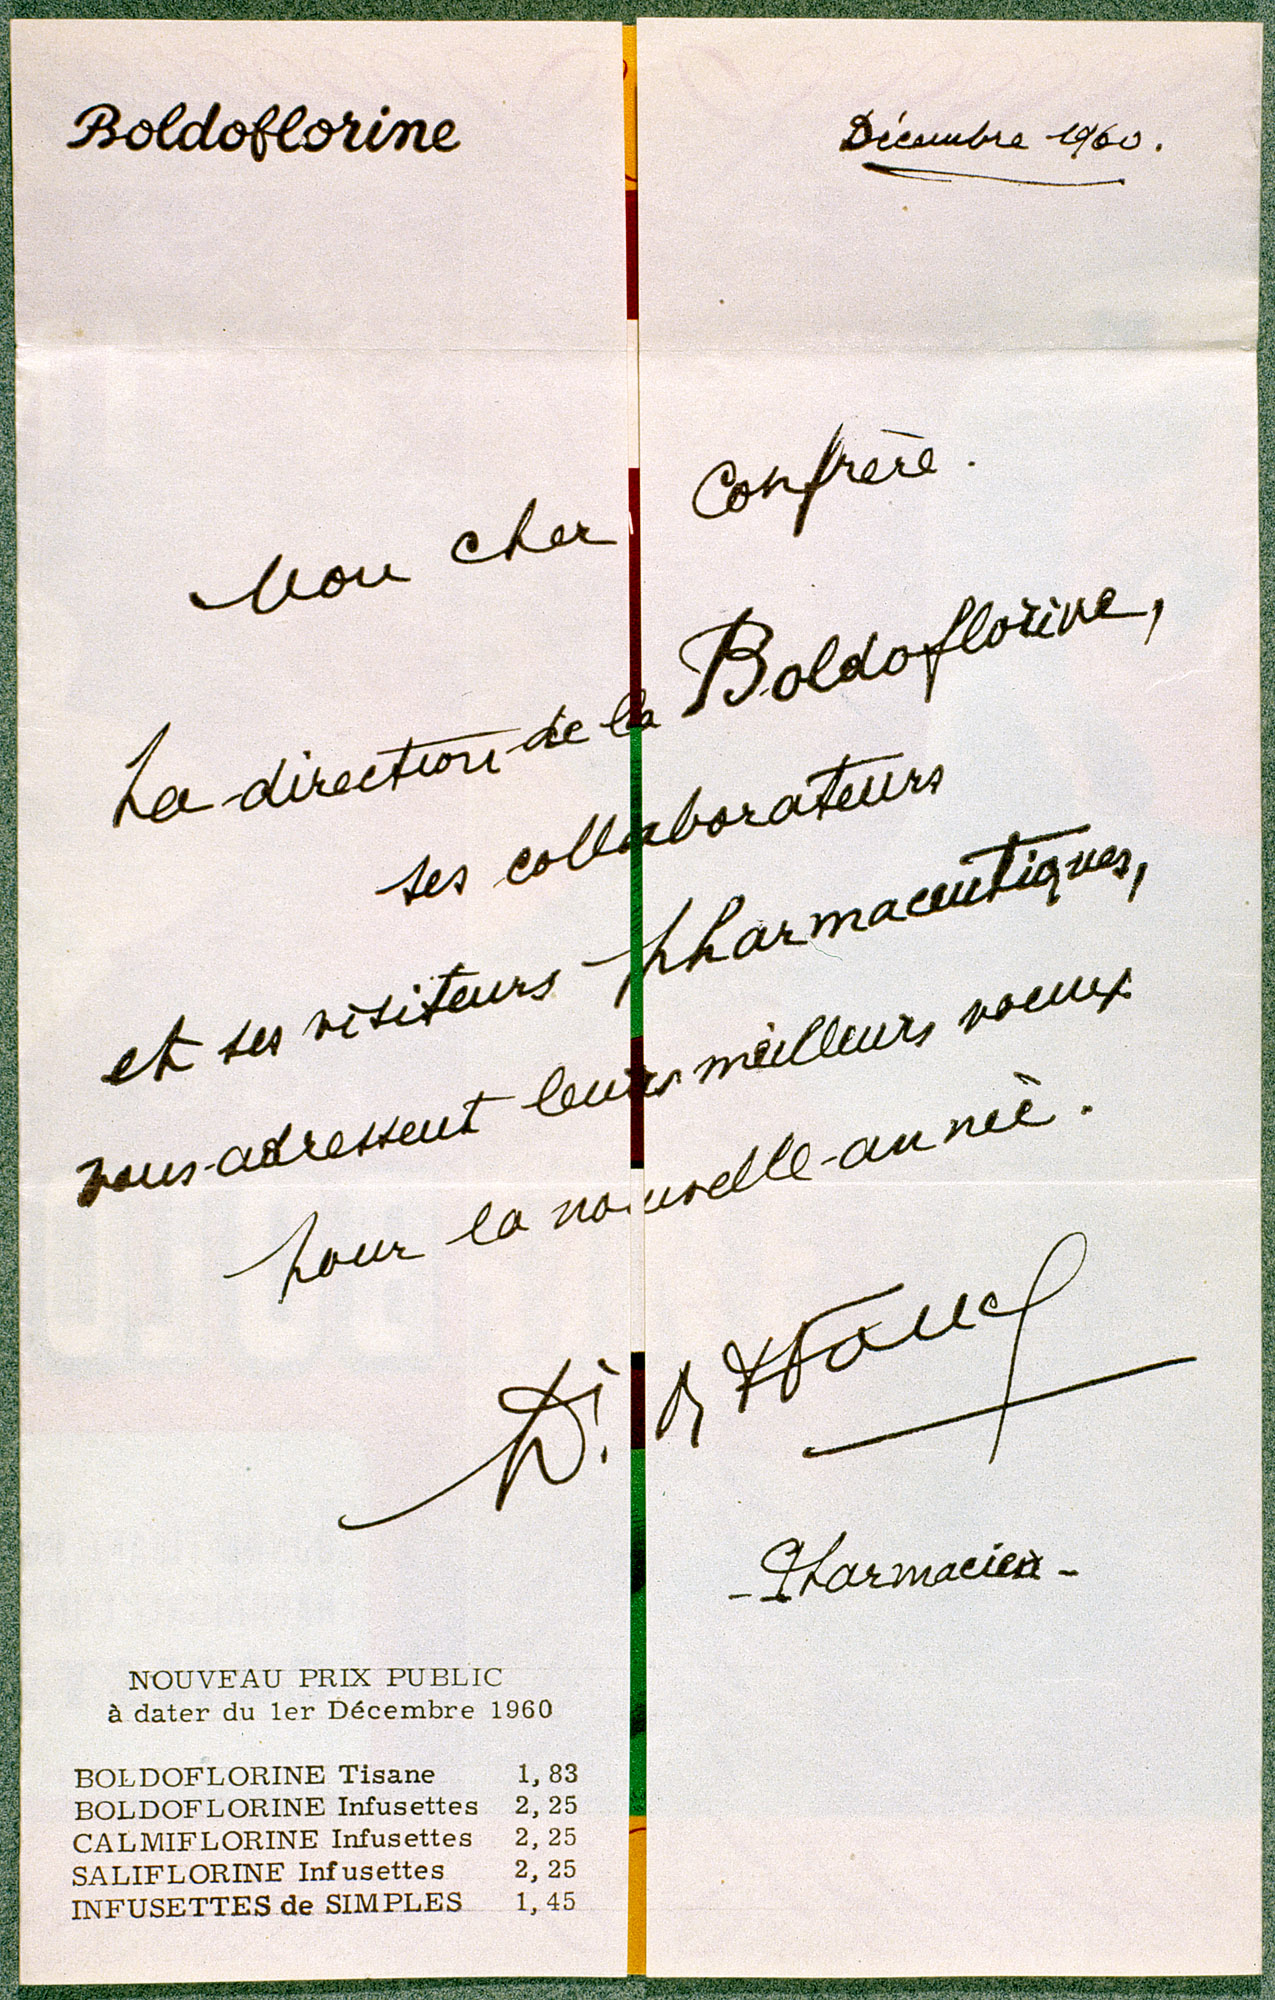 Boldoflorine
Décembre 1960.
Mon cher Confrère.
La direction de la Boldoflorine,
ses collaborateurs
et ses visiteurs pharmaceutiques,
vous adressent leurs meilleurs voeux
pour la nouvelle année.
Pharmacien
NOUVEAU PRIX PUBLIC
à dater du 1er Décembre 1960
BOLDOFLORINE Tisane 1,83
BOLDOFLORINE Infusettes 2,25
CALMIFLORINE Infusettes 2,25
SALIFLORINE Infusettes 2,25
INFUSETTES de SIMPLES 1,45